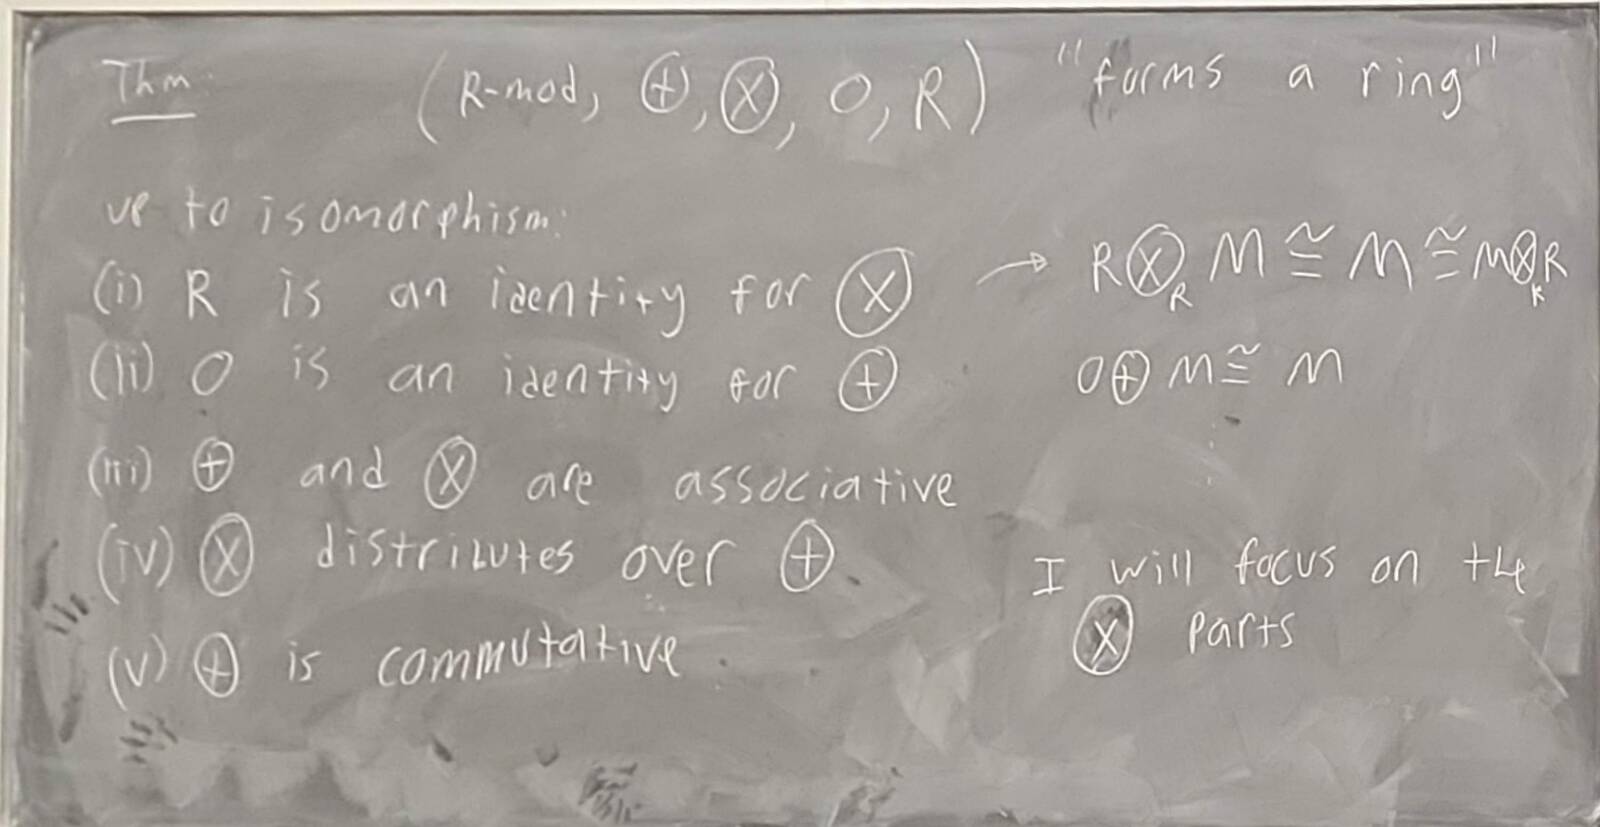 Thm: (R-mod, ⊕, ⊗, 0, R) "forms a ring"
up to isomorphism:
(i) R is an identity for ⊗ → R⊗_R M ≅ M ≅ M⊗_R R
(ii) 0 is an identity for ⊕ 0⊕M ≅ M
(iii) ⊕ and ⊗ are associative
(iv) ⊗ distributes over ⊕.
(v) ⊕ is commutative.
I will focus on the
⊗ parts